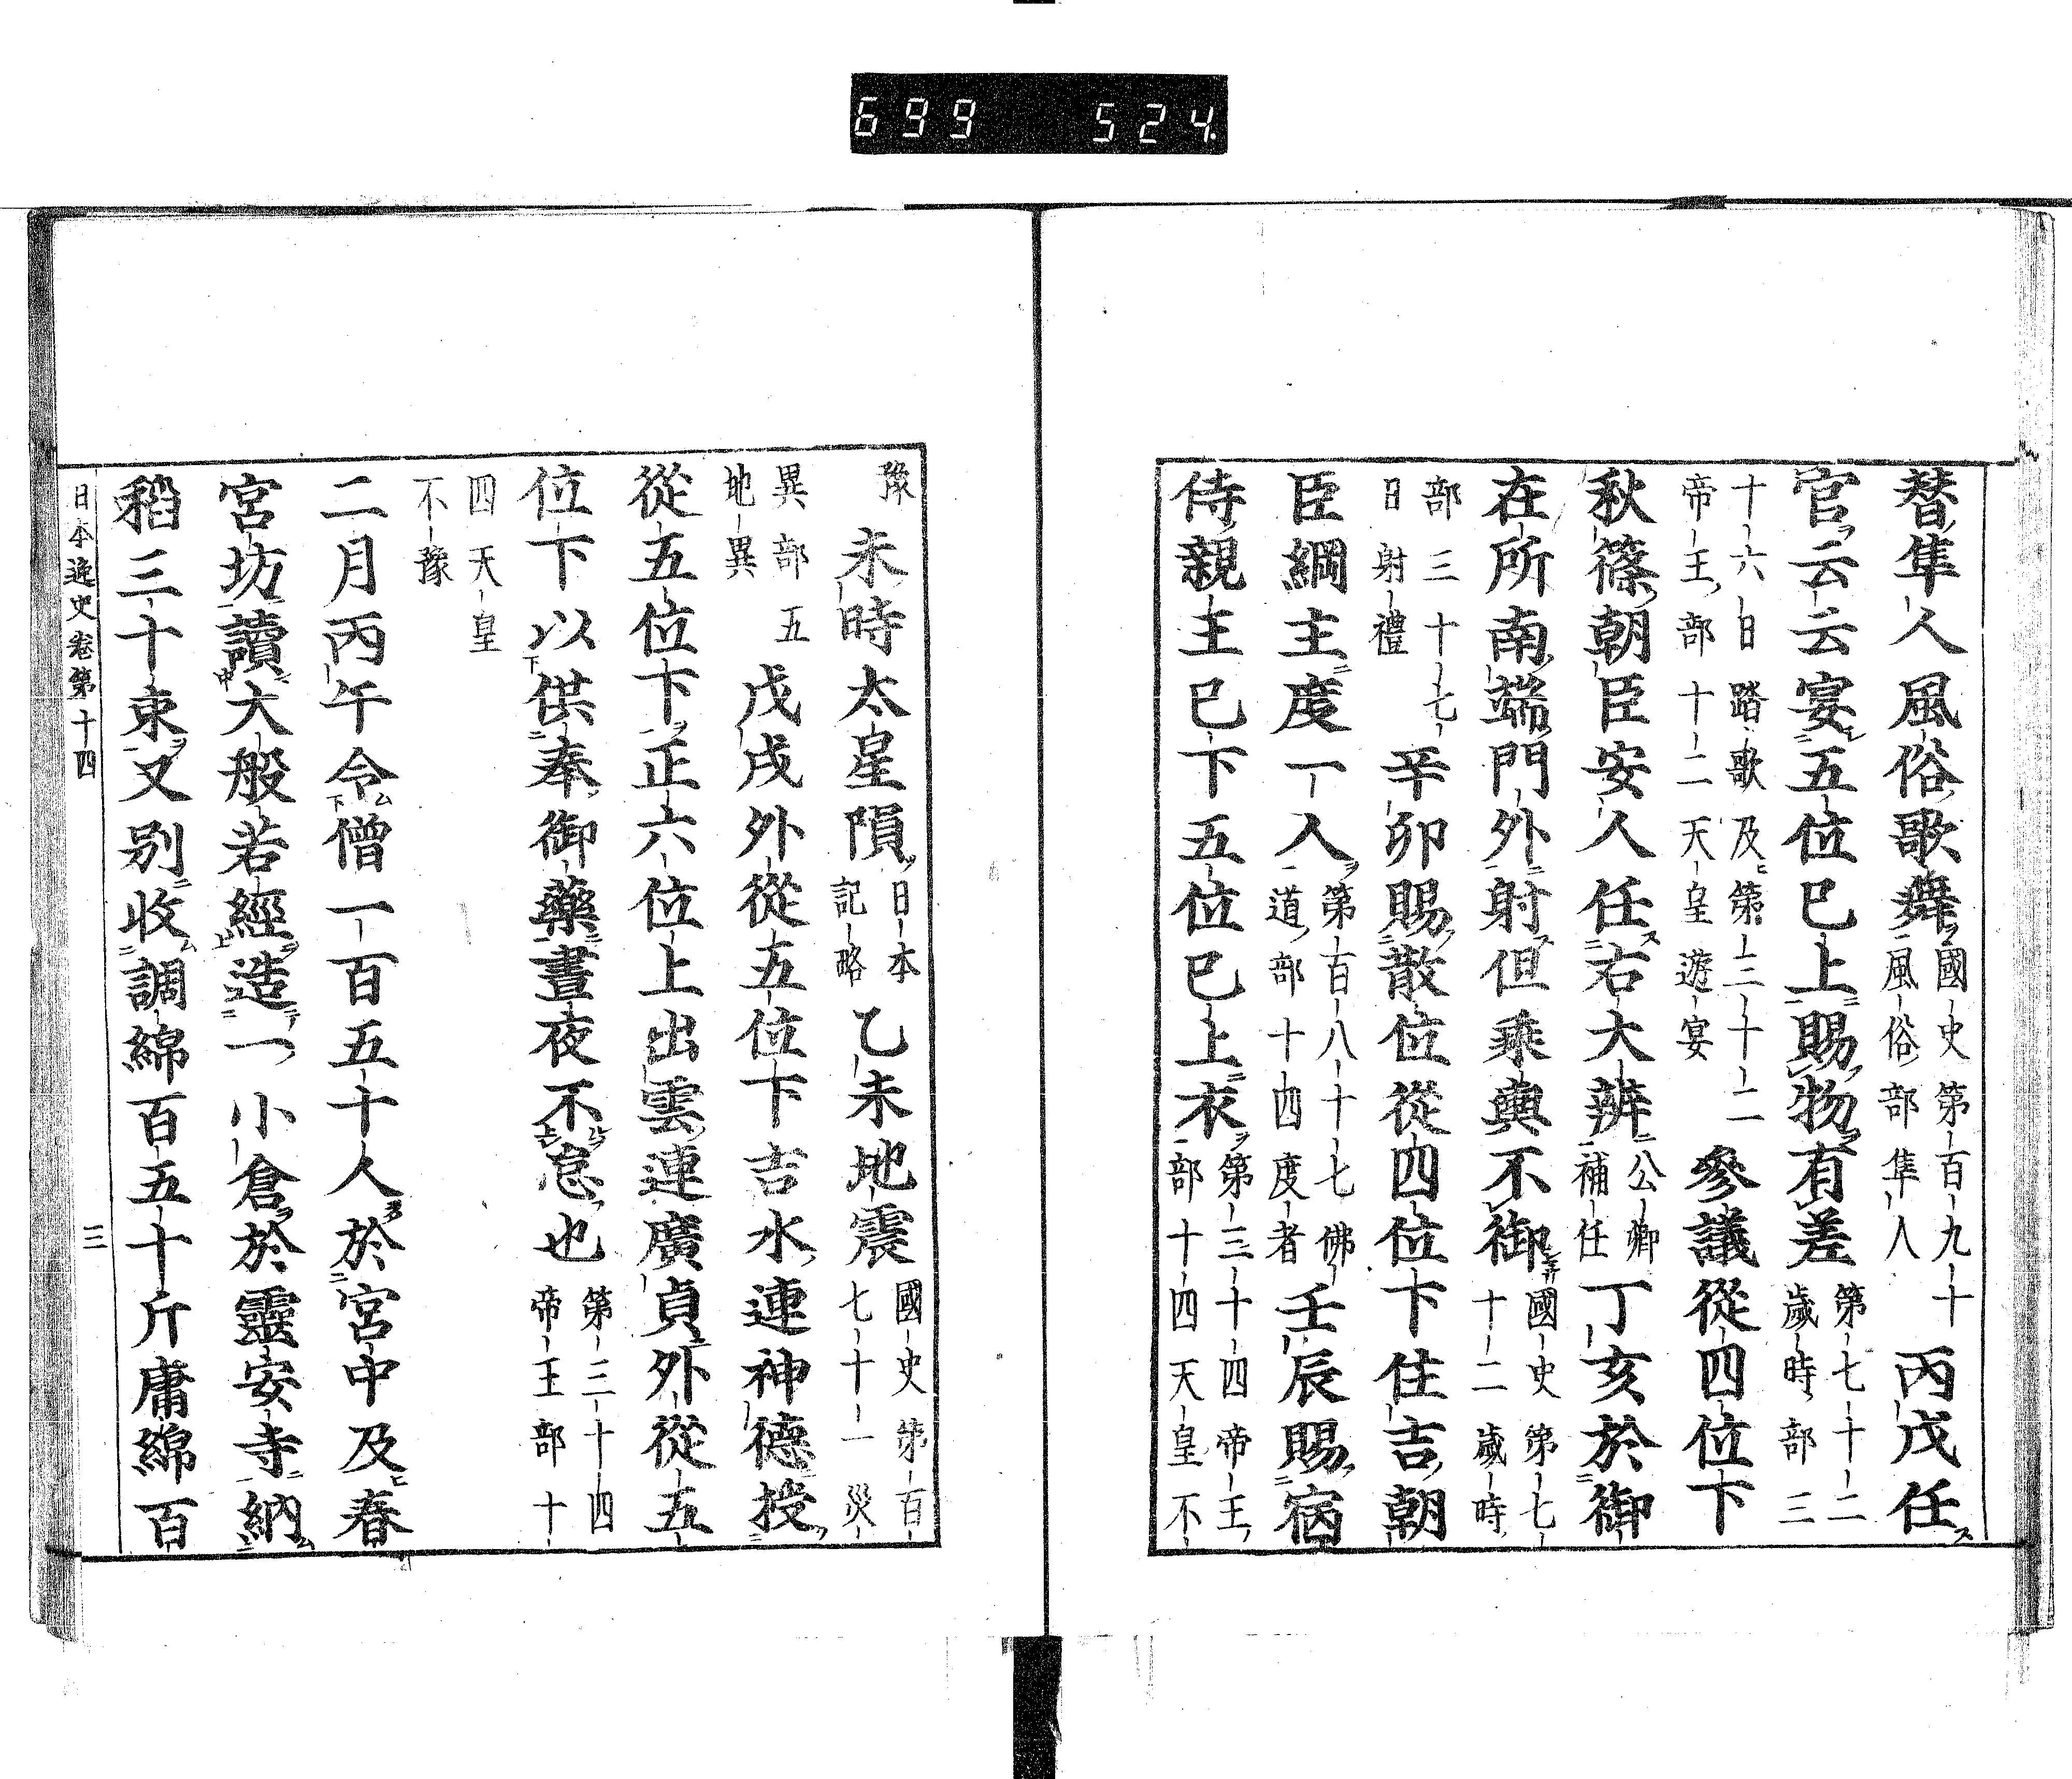 699 524.
替隼人風俗歌舞國史第百九十風俗部隼人丙戊任
官云云宴五位已上賜物有差第七十二歲時部三
十六日踏歌及第三十二帝王部十二天皇遊宴參議從四位下
秋篠朝臣安人任右大辨公卿補任丁亥於御
在所南端門外射但乘輿不御國史第七十二歲時
部三十七日射禮辛卯賜散位從四位下住吉朝
臣綱主度一人第百八十七佛道部十四度者壬辰賜宿
侍親王已下五位已上衣第三十四帝王部十四天皇不
豫未時太星隕日本記略乙未地震國史第百七十一災
異部五地異戊戌外從五位下吉水連神德授
從五位下正六位上出雲連廣貞外從五
位下以供奉御藥晝夜不怠也第三十四帝王部十
四天皇不豫
二月丙午令僧一百五十人於宮中及春
宮坊讀大般若經造一小倉於靈安寺納
稻三十束又別收調綿百五十斤庸綿百
日本逸史卷第十四 三